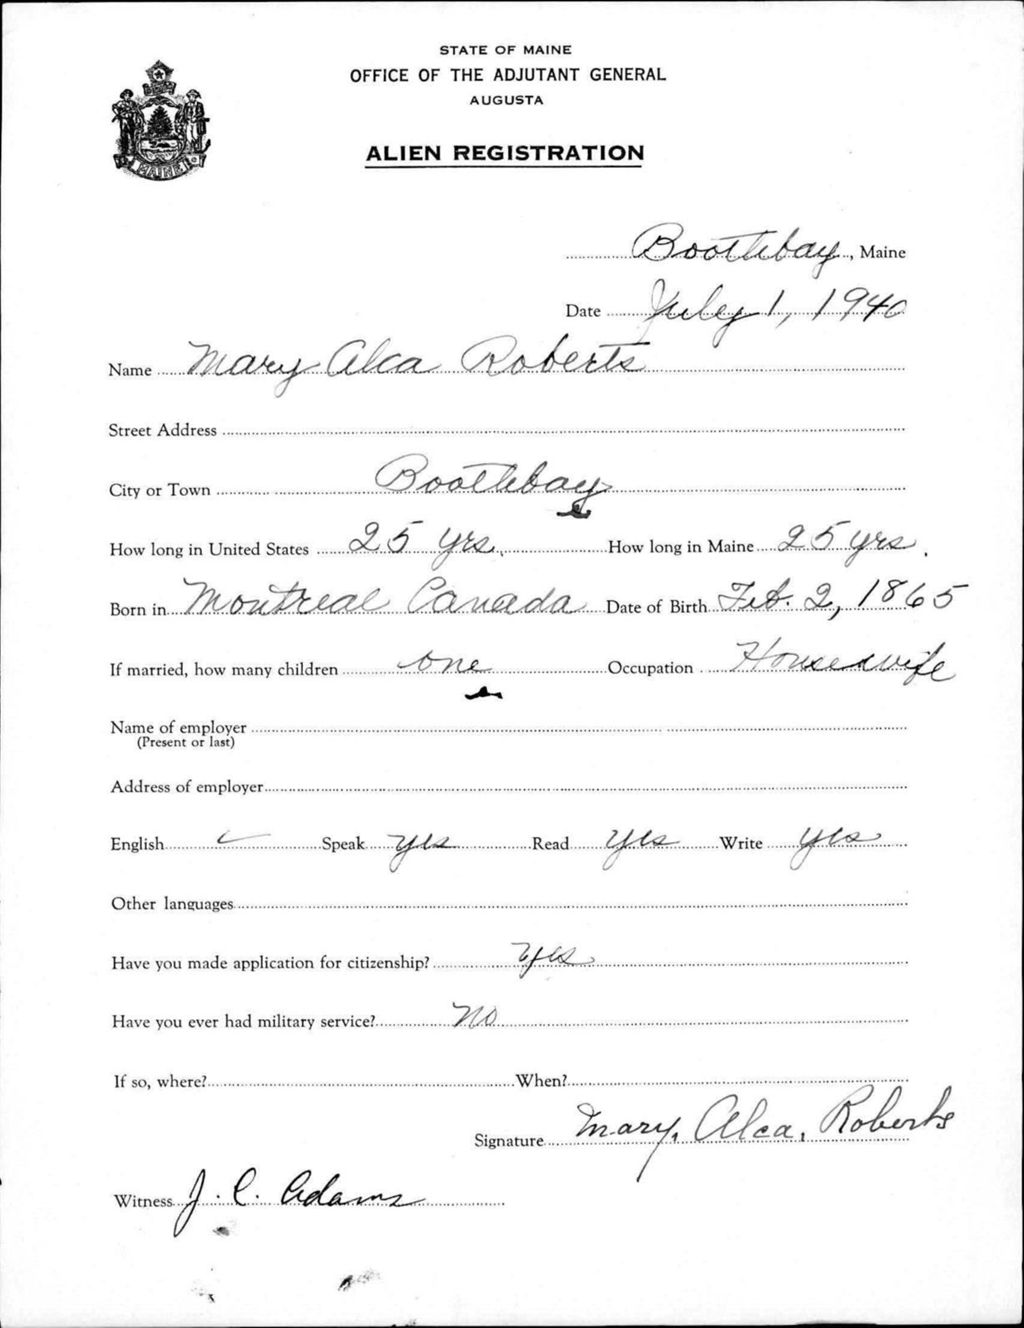 STATE OF MAINE
OFFICE OF THE ADJUTANT GENERAL
AUGUSTA
ALIEN REGISTRATION
MAINE
Boothbay, Maine
Date July 1, 1940
Name Mary Alca Roberts
Street Address
City or Town Boothbay
How long in United States 25 yrs. How long in Maine 25 yrs.
Born in Montreal Canada Date of Birth Feb. 2, 1865
If married, how many children one Occupation Housewife
Name of employer
(Present or last)
Address of employer
English ✓ Speak yes Read yes Write yes
Other languages
Have you made application for citizenship? Yes
Have you ever had military service? No
If so, where? When?
Signature Mary, Alca, Roberts
Witness J. C. Adams